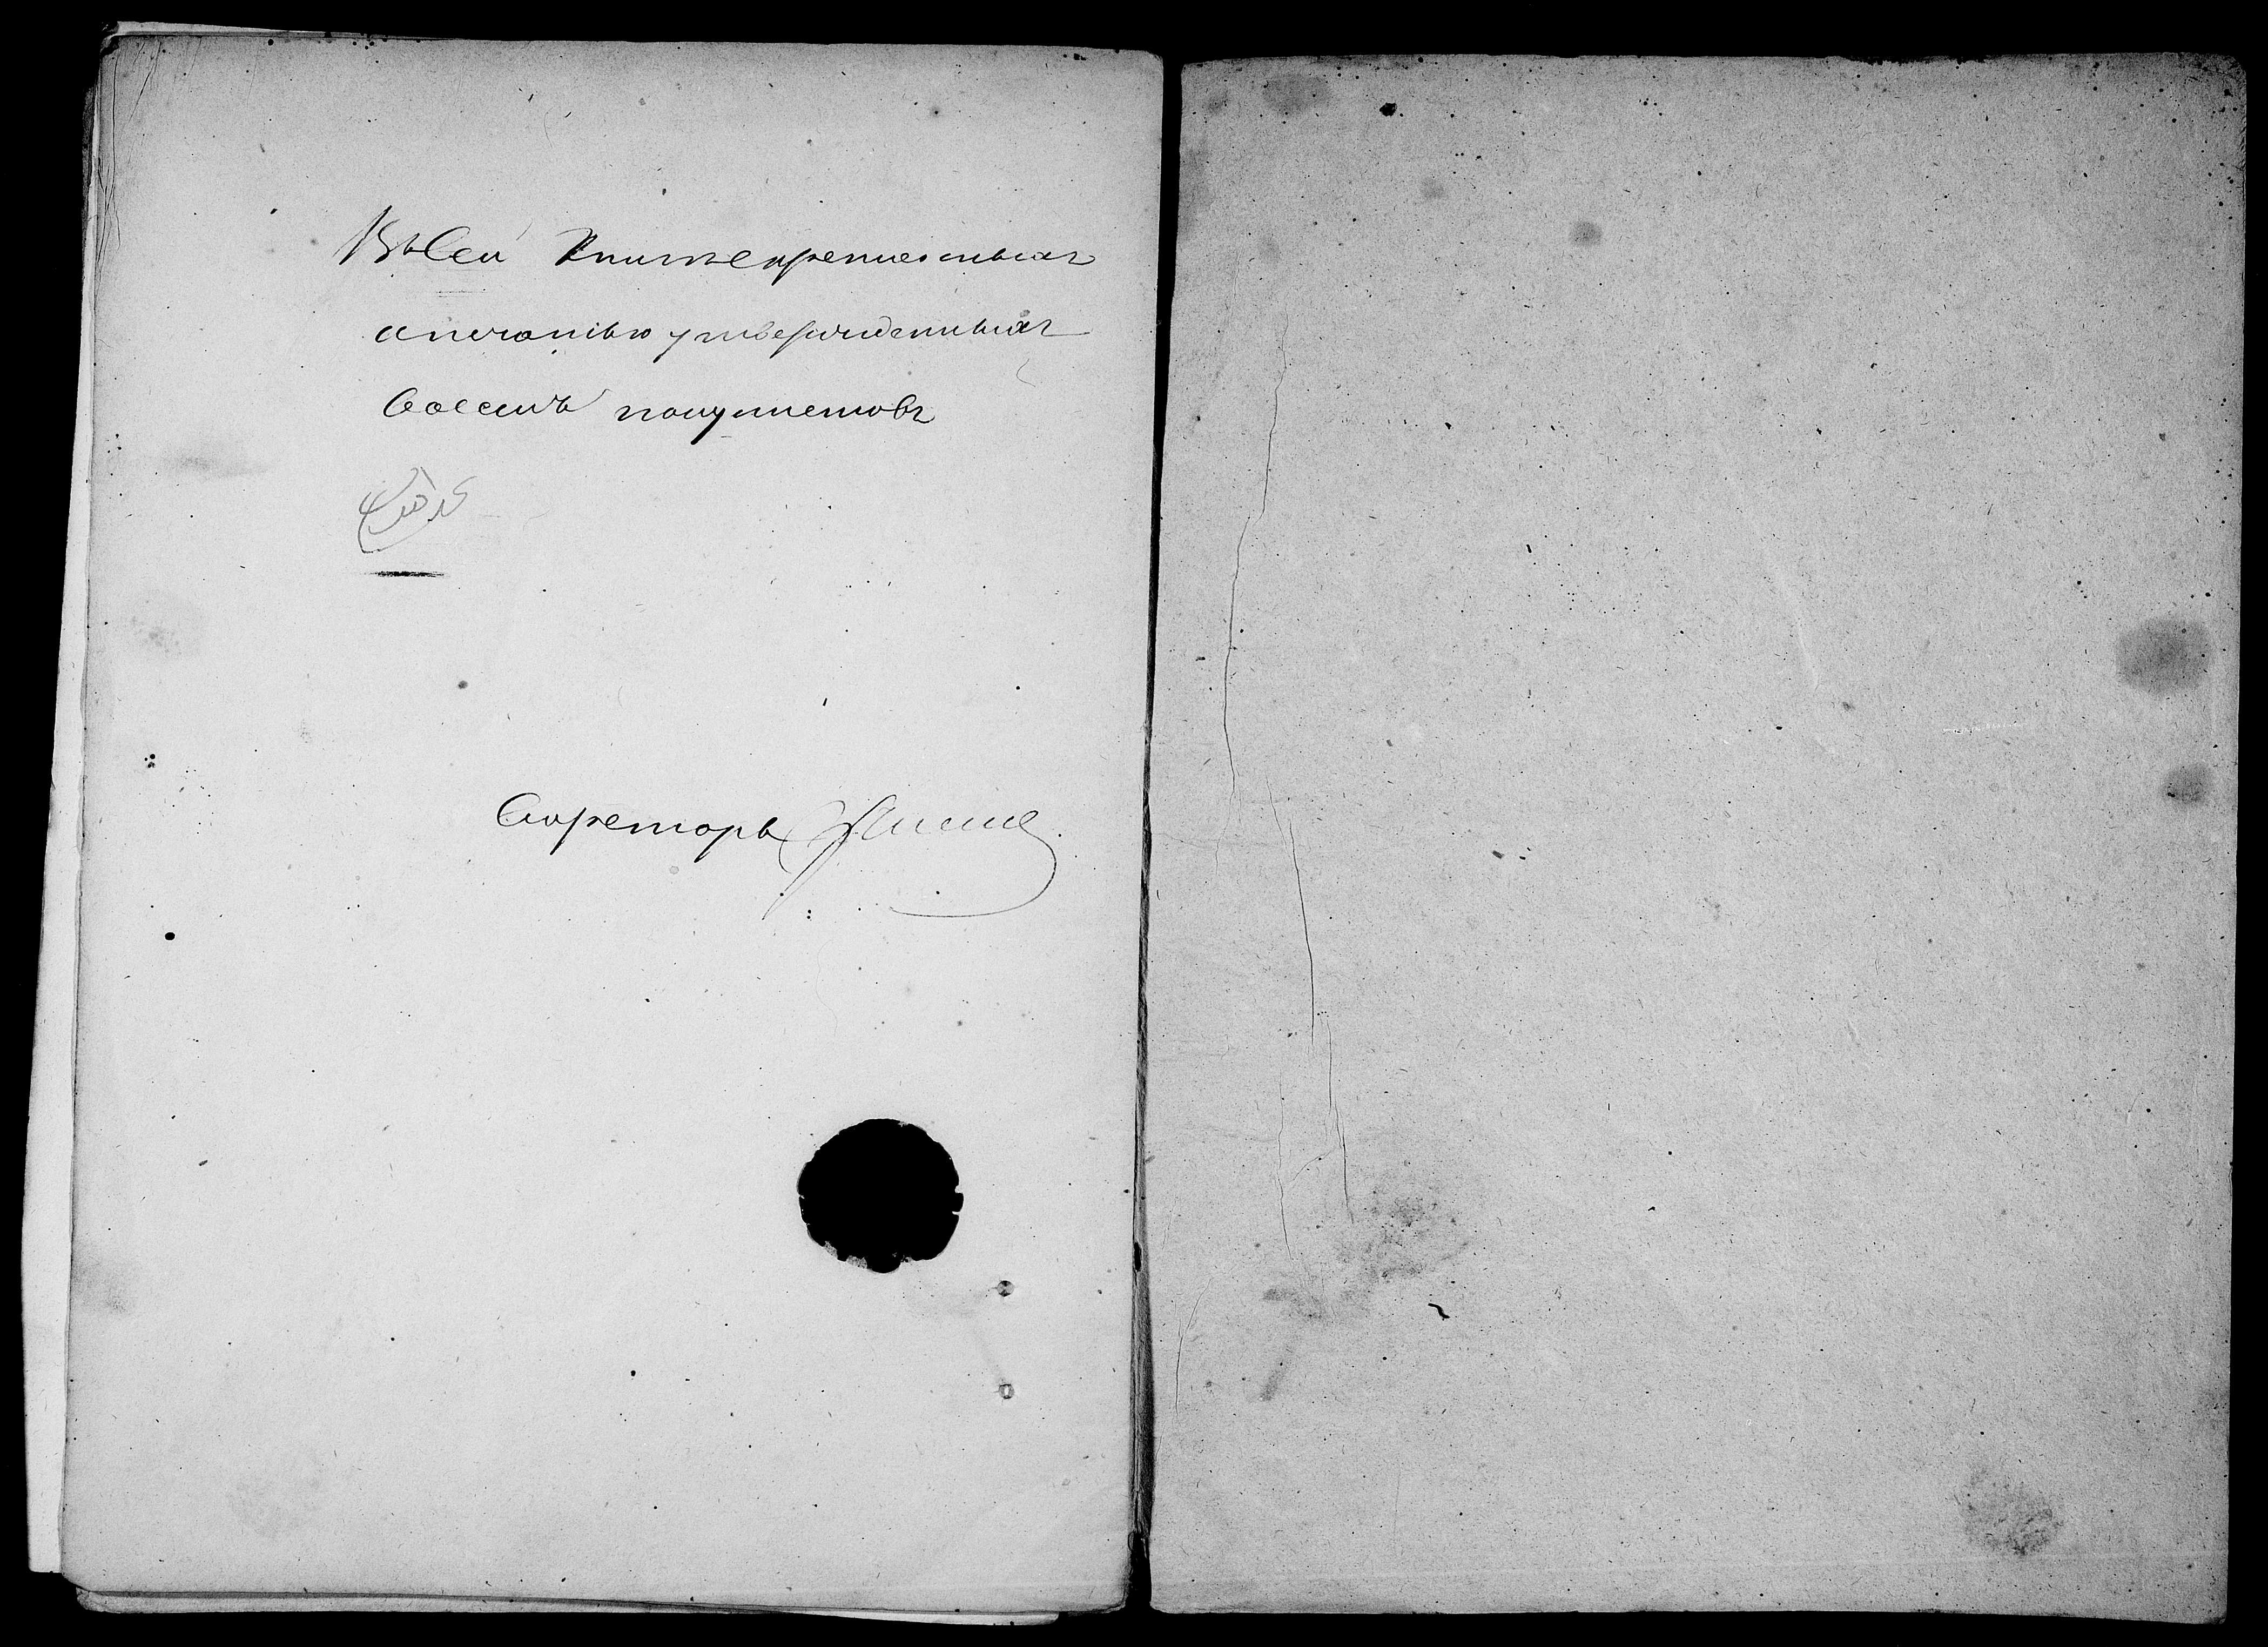 Въ сей Книге скрепленныхъ
и печатью утвержденныхъ
восемь полулистовъ
Секретарь